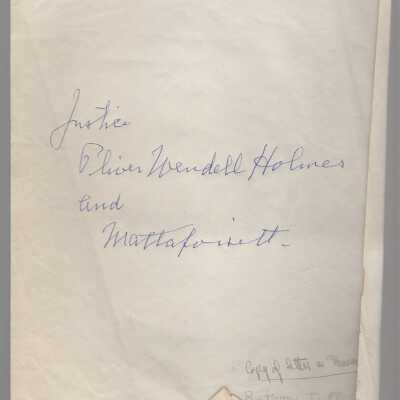 Justice
Oliver Wendell Holmes
and
Mattapoisett.
Copy of letter in